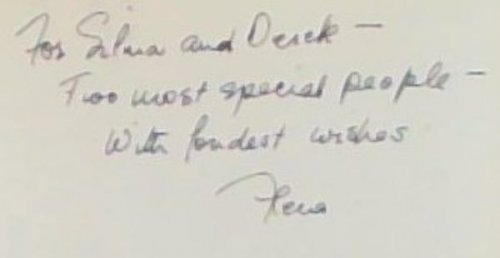 For Silma and Derek –
Two most special people –
With fondest wishes